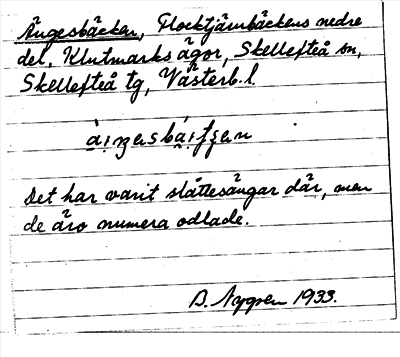 Ängesbäcken, Flocktjärnbäckens nedre
del, Klutmarks ägor, Skellefteå sn,
Skellefteå tg, Västerb. l.
Det har varit slåttesängar där, men
de äro numera odlade.
D. Nygren 1933.